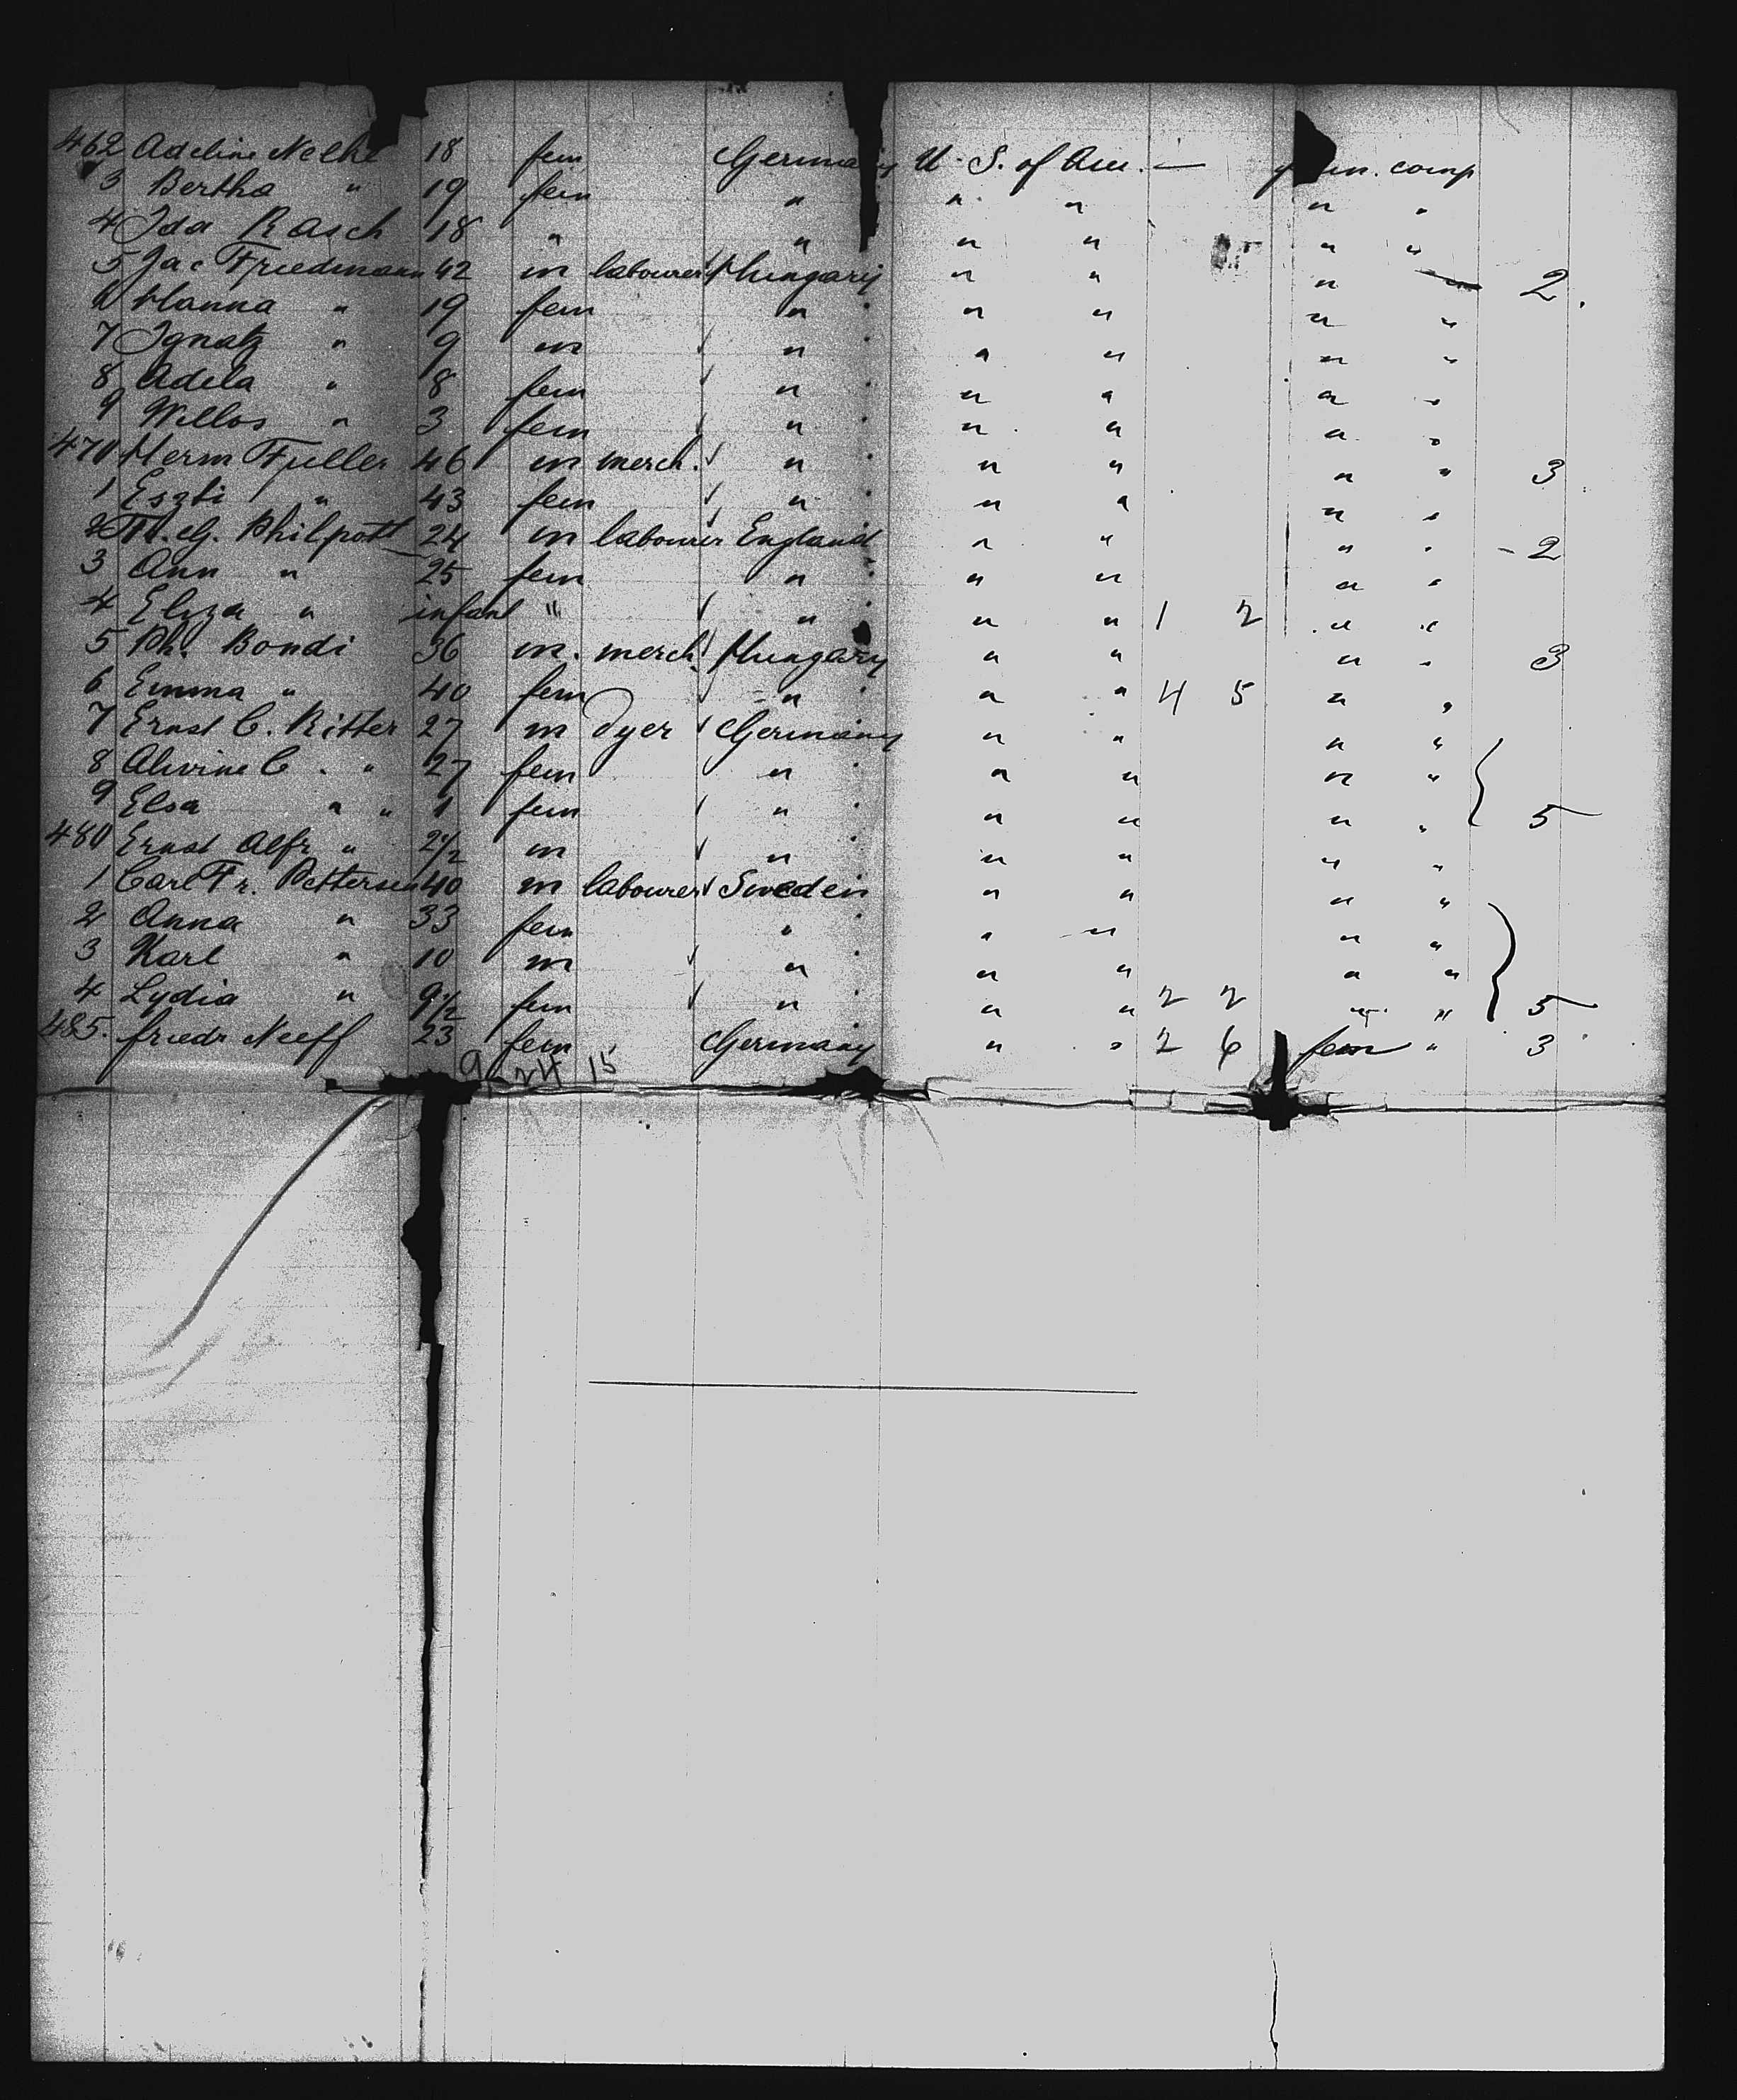 462 Adeline Nelke 18 fem Germany U. S. of Am. — comp
3 Bertha " 19 fem " " " " "
4 Ida Rasch 18 " " " " " "
5 Jac Friedmann 42 m labourer Hungary " " " " 2.
6 Hanna " 19 fem " " " " "
7 Ignatz " 9 m " " " " "
8 Adela " 8 fem " " " " "
9 Willos " 3 fem " " " " "
470 Herm Fuller 46 m merch. " " " " " 3
1 Eszti " 43 fem " " " " "
2 G. Philpott 24 m labourer England " " " " - 2
3 Ann " 25 fem " " " " "
4 Elyza " infant " " " " 1 2 " "
5 Ph. Bondi 36 m. merch. Hungary " " " " 3
6 Emma " 40 fem " " " 4 5 " "
7 Ernst C. Ritter 27 m dyer Germany " " " "
8 Alwine C. " 27 fem " " " " "
9 Elsa " " 4 fem " " " " " 5
480 Ernst Alfr " 2 1/2 m " " " " "
1 Carl Fr. Pettersen 40 m labourer Sweden " " " "
2 Anna " 33 fem " " " " "
3 Karl " 10 m " " " " "
4 Lydia " 9 1/2 fem " " " 2 2 " " 5
485. friedr Neeff 23 fem Germany " " 2 6 fem " 3
9 24 15